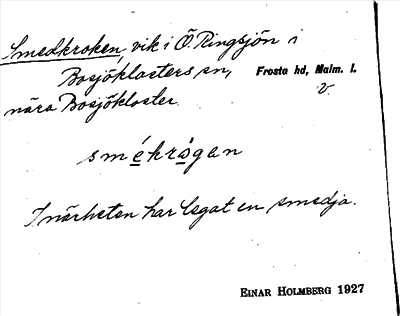 Smedkroken, vik i Ö. Ringsjön i
Bosjöklosters sn, Frosta hd, Malm. l.
nära Bosjökloster. v.
smékrågan
I närheten har legat en smedja.
EINAR HOLMBERG 1927